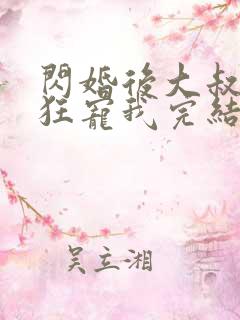 閃婚後大叔
狂寵我完結
吳立湘